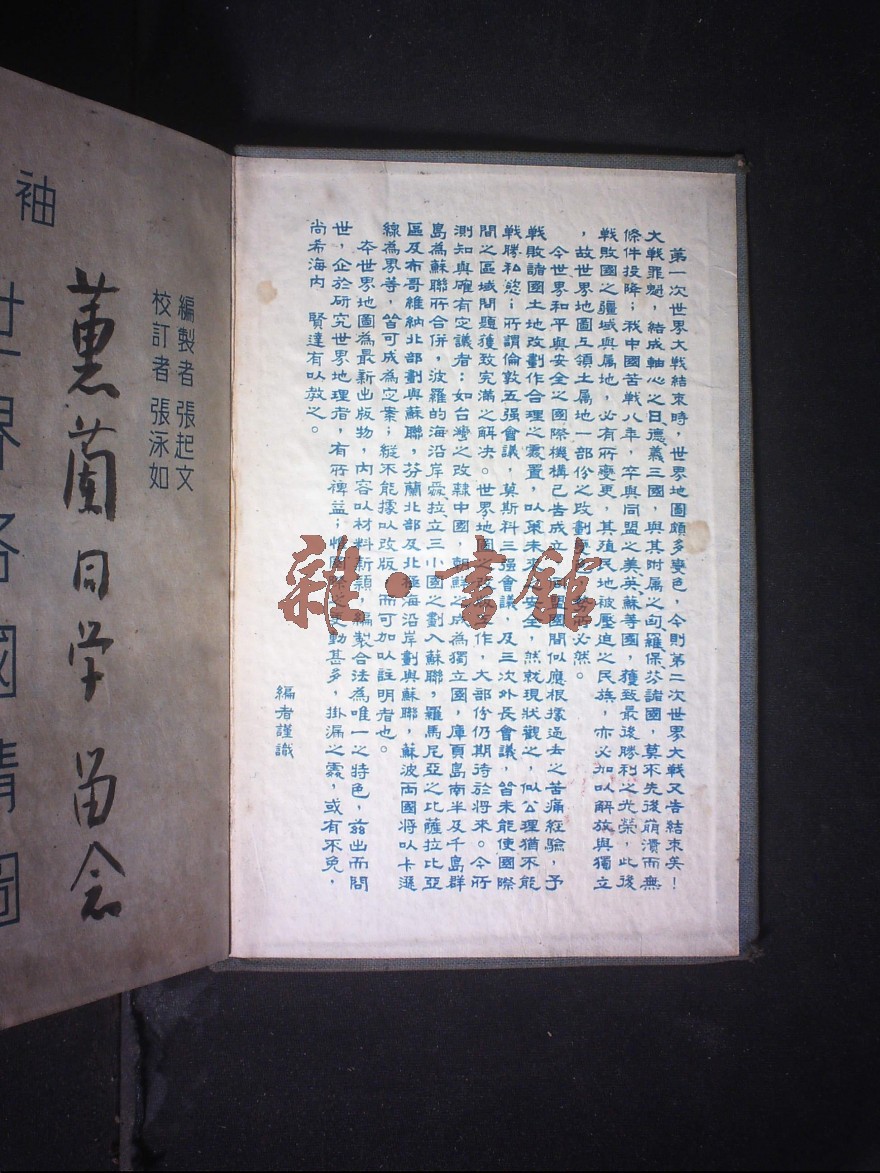 第一次世界大战結束時，世界地圖頗多變色，今則第二次世界大战又告結束矣！
大战罪魁，結成軸心之日德義三國，與其附属之匈羅保芬諸國，莫不先後崩潰而無
條件投降；我中國苦战八年，卒與同盟之美英蘇等國，獲致最後勝利之光榮，此後
战敗國之疆域與属地，必有所變更，其殖民地被壓迫之民族，亦必加以解放與獨立
，故世界地圖互領土属地一部份之改劃 必然。
今世界和平與安全之國際機構已告成立， 國間似應根據過去之苦痛經驗，予
战敗諸國土地改劃作合理之處置，以策未來 安全，然就現狀觀之，似公理猶不能
戰勝私慾；所謂倫敦五强會議，莫斯科三强會議，及三次外長會議，皆未能使國際
間之區域問題獲致完滿之解决。世界地圖之改 工作，大部份仍期待於將來。今所
測知與確有定議者；如台灣之改隸中國，朝鮮之成為獨立國，庫頁島南半及千島群
島為蘇聯所合併，波羅的海沿岸 拉立三小國之劃入蘇聯，羅馬尼亞之比薩拉比亞
區及布哥維納北部劃與蘇聯，芬蘭北部及北極海沿岸劃與蘇聯，蘇波両國將以卡遜
線為界等，皆可成為定案；縱不能據以改版，而可加以註明者也。
夲世界地圖為最新出版物，内容以材料新穎，編製合法為唯一之特色，兹出而問
世，企於研究世界地理者，有所裨益；惟國際之變動甚多，掛漏之處，或有不免，
尚希海内　賢達有以教之。
編者謹識
編製者 張起文
校訂者 張泳如
蕙蘭同学留念
袖
世界各國詳圖
雜·書館